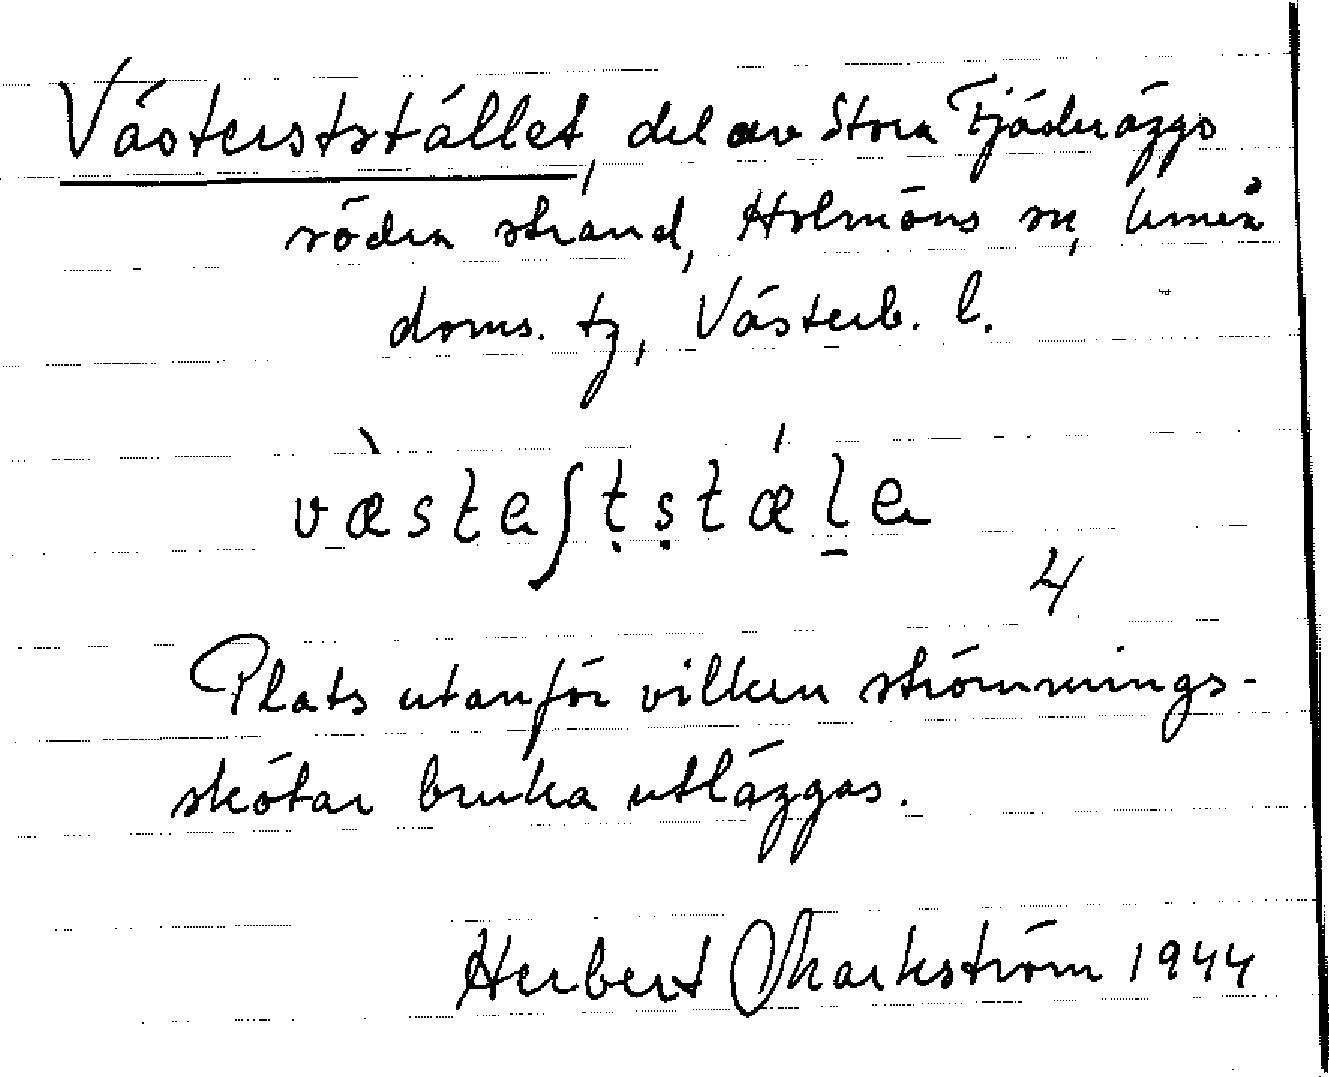 Västerststället, del av Stora Fjäderäggs
södra strand, Holmöns sn, Umeå
doms. tg, Västerb. l.
væ̀steʃṭṣtǽl̲e
4
Plats utanför vilken strömmings-
skötar bruka utläggas.
Herbert Markström 1944